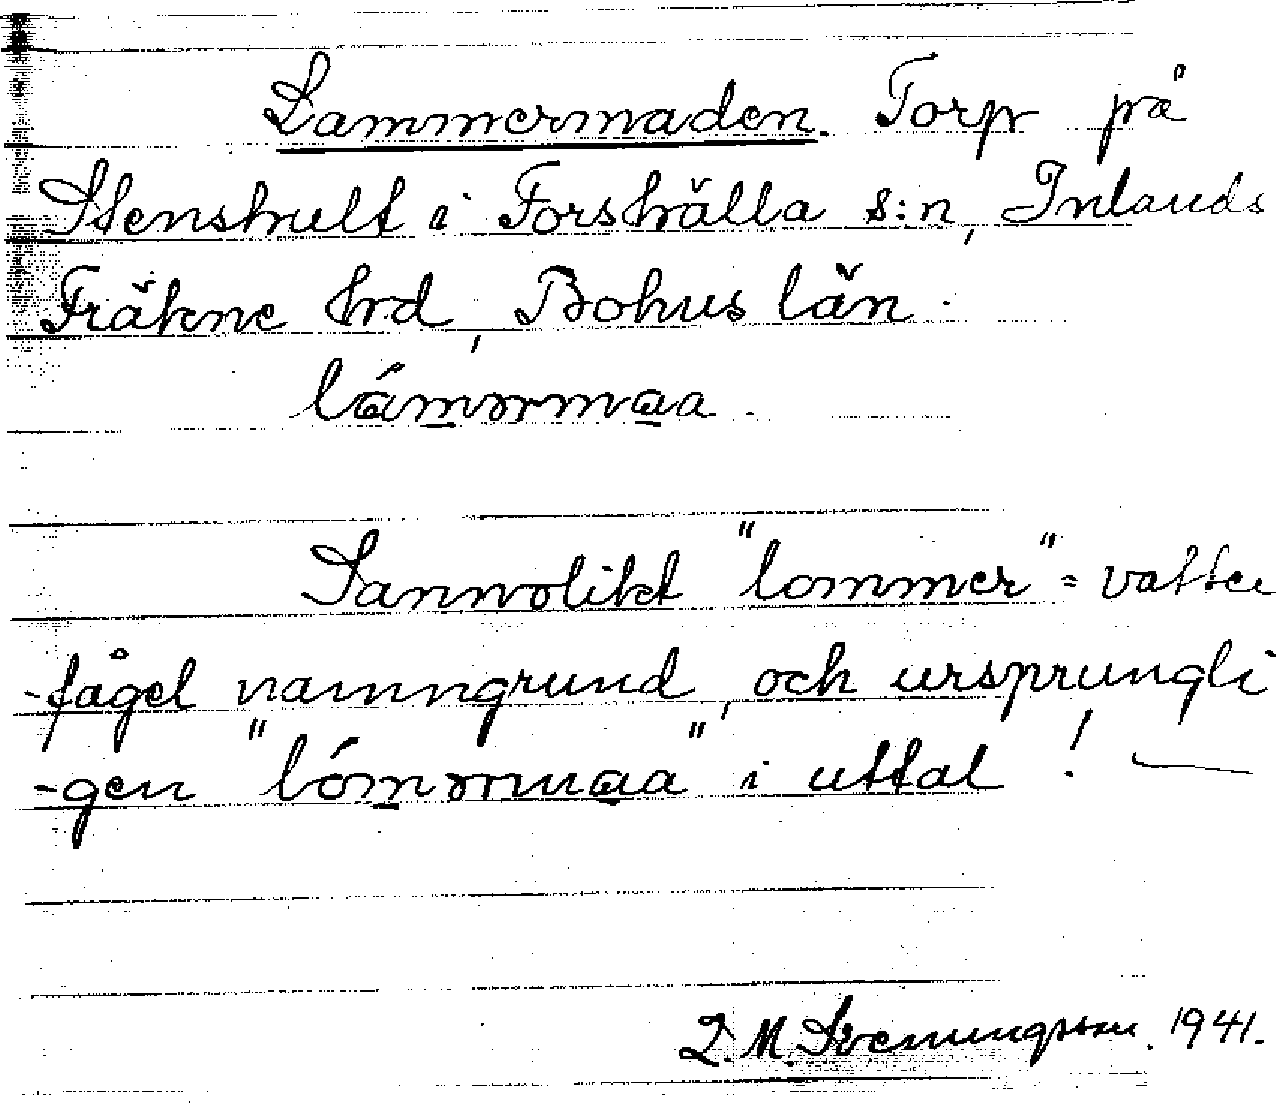 Lammermaden. Torp på
Stenshult i Forshälla s:n, Inlands
Fräkne hrd, Bohus län.
lám̲ərma̲a.
Sannolikt "lommer" = vatten
-fågel namngrund, och ursprungli
-gen "lóm̲ərma̲a" i uttal! —
L. M. Svenungsson. 1941.